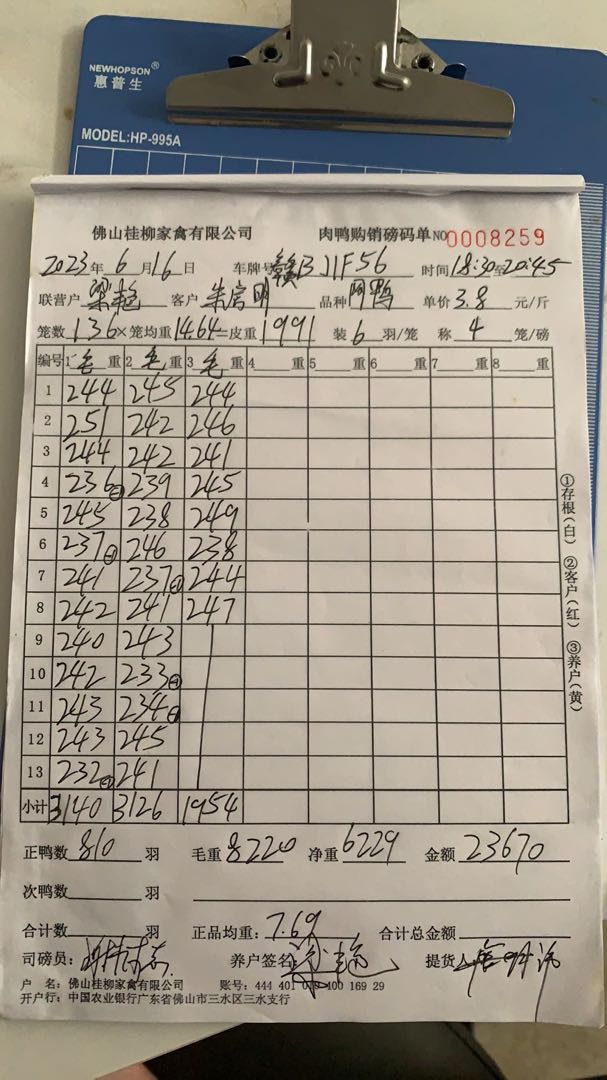 NEWHOPSON®
惠普生
MODEL:HP-995A
佛山桂柳家禽有限公司 肉鸭购销磅码单 NO 0008259
2023年 6月16日 车牌号 赣B J1F56 时间 18:30至20:45
联营户 梁艳 客户 品种 肉鸭 单价 3.8 元/斤
笼数 136 × 笼均重 14.64 = 皮重 1991 装 6 羽/笼 称 4 笼/磅
编号 1 毛 重 2 毛 重 3 毛 重 4 重 5 重 6 重 7 重 8 重
1 244 245 244
2 251 242 246
3 244 242 241
4 236 239 245
5 245 238 249
6 237 246 238
7 241 237 244
8 242 241 247
9 240 243
10 242 233
11 243 234
12 243 245
13 232 241
小计 3140 3126 1954
正鸭数 810 羽 毛重 8220 净重 6229 金额 23670
次鸭数 羽
合计数 羽 正品均重: 7.69 合计总金额
司磅员: 养户签名: 梁艳 提货人
户 名: 佛山桂柳家禽有限公司 账号: 444 401 040 400 169 29
开户行: 中国农业银行广东省佛山市三水区三水支行
①存根(白) ②客户(红) ③养户(黄)